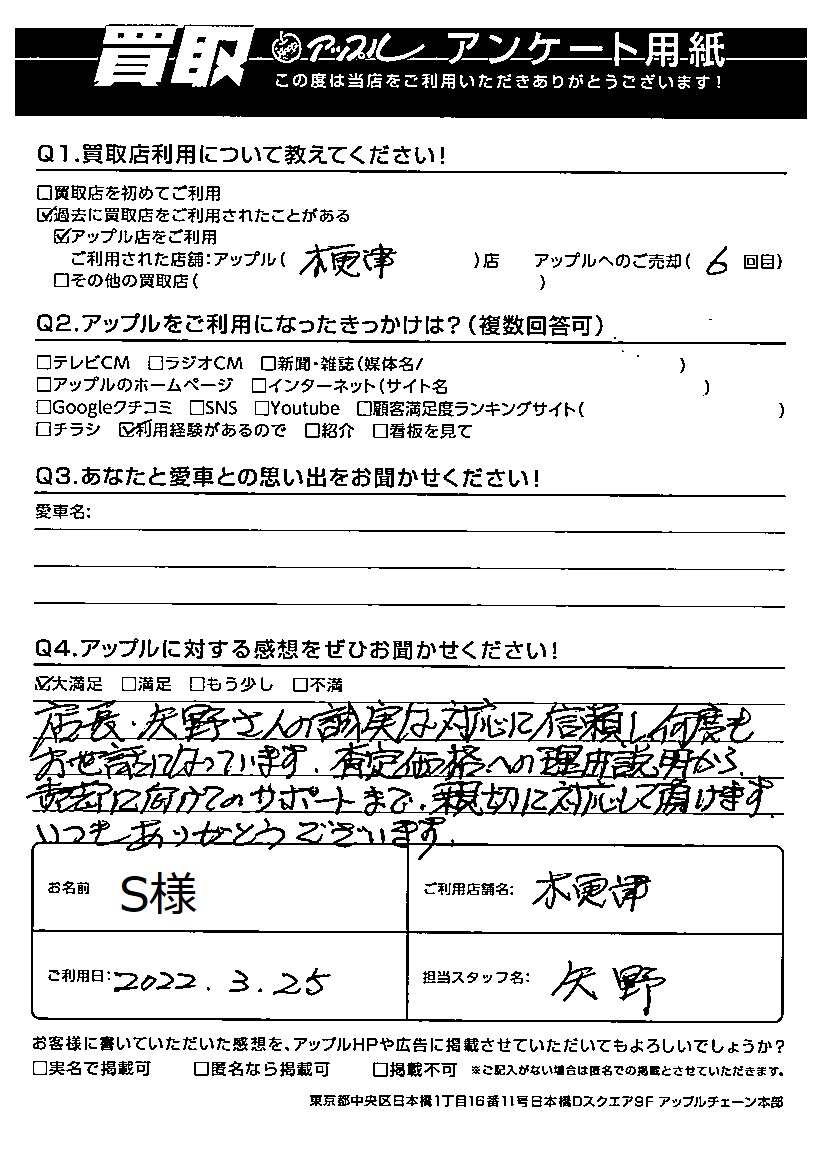 買取 アップル アンケート用紙
この度は当店をご利用いただきありがとうございます！
Q1.買取店利用について教えてください！
□買取店を初めてご利用
☑過去に買取店をご利用されたことがある
☑アップル店をご利用
ご利用された店舗：アップル( 木更津 )店 アップルへのご売却( 6 回目)
□その他の買取店( )
Q2.アップルをご利用になったきっかけは？(複数回答可)
□テレビCM □ラジオCM □新聞・雑誌(媒体名/ )
□アップルのホームページ □インターネット(サイト名 )
□Googleクチコミ □SNS □Youtube □顧客満足度ランキングサイト( )
□チラシ ☑利用経験があるので □紹介 □看板を見て
Q3.あなたと愛車との思い出をお聞かせください！
愛車名：
Q4.アップルに対する感想をぜひお聞かせください！
☑大満足 □満足 □もう少し □不満
店長・矢野さんの誠実な対応に信頼し何度も
お世話になっています。査定価格への理由説明から
売却に向けてのサポートまで、親切に対応して頂けます
いつもありがとうございます。
お名前 S様 ご利用店舗名： 木更津
ご利用日：2022.3.25 担当スタッフ名： 矢野
お客様に書いていただいた感想を、アップルHPや広告に掲載させていただいてもよろしいでしょうか？
□実名で掲載可 □匿名なら掲載可 □掲載不可 ※ご記入がない場合は匿名での掲載とさせていただきます。
東京都中央区日本橋1丁目16番11号日本橋Dスクエア9F アップルチェーン本部